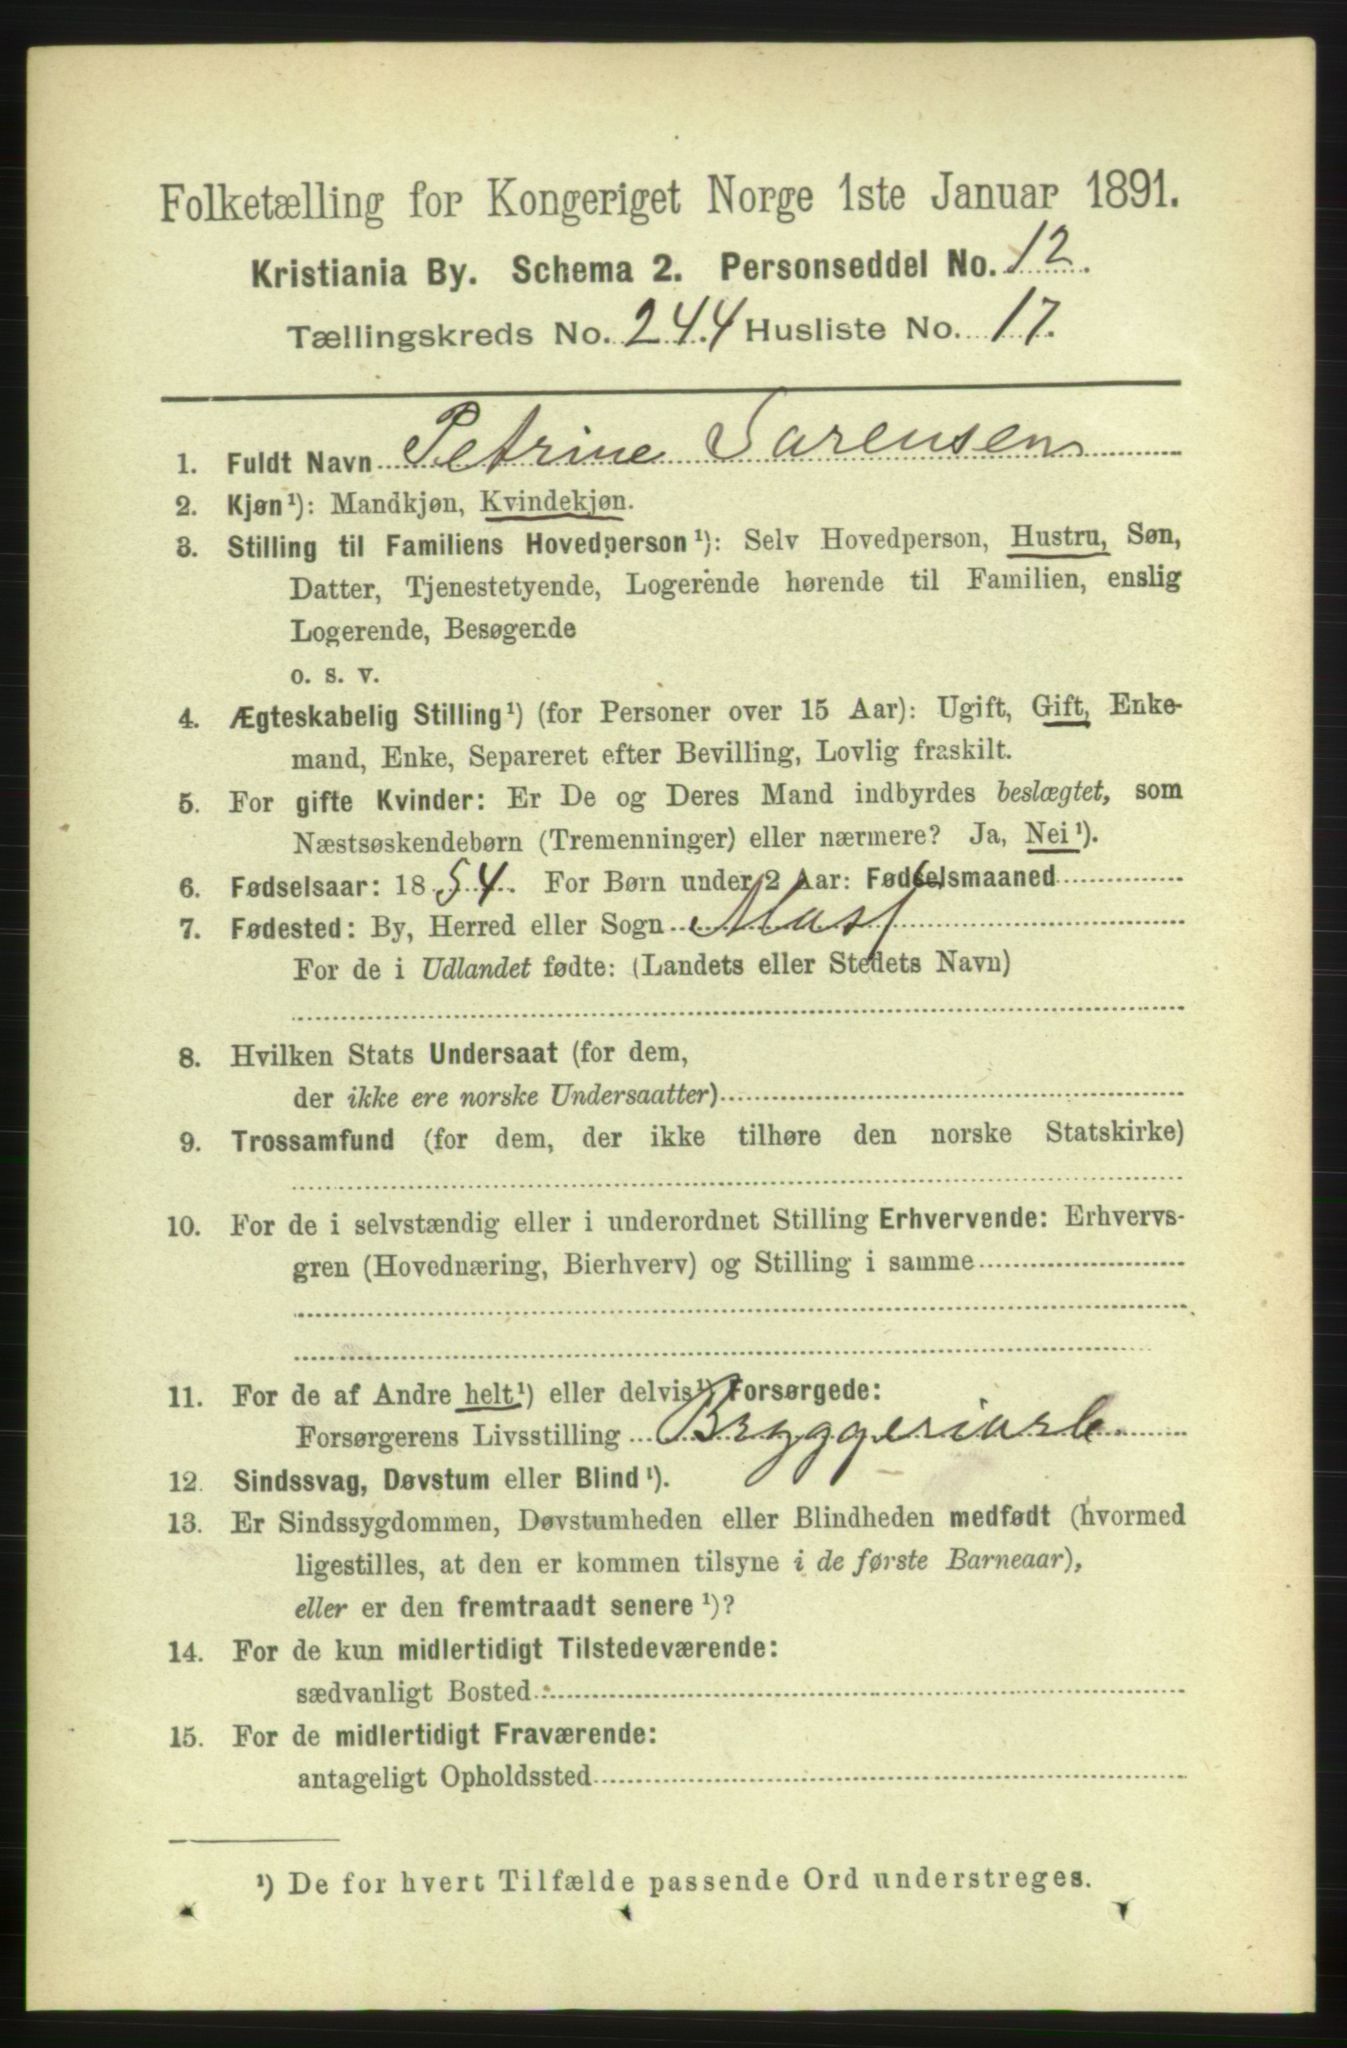 Folketælling for Kongeriget Norge 1ste Januar 1891.
Kristiania By. Schema 2. Personseddel No. 12.
Tællingskreds No. 244 Husliste No. 17.
1. Fuldt Navn Petrine Sørensen
2. Kjøn¹): Mandkjøn, Kvindekjøn.
3. Stilling til Familiens Hovedperson¹): Selv Hovedperson, Hustru, Søn,
Datter, Tjenestetyende, Logerende hørende til Familien, enslig
Logerende, Besøgende
o. s. v.
4. Ægteskabelig Stilling¹) (for Personer over 15 Aar): Ugift, Gift, Enke-
mand, Enke, Separeret efter Bevilling, Lovlig fraskilt.
5. For gifte Kvinder: Er De og Deres Mand indbyrdes beslægtet, som
Næstsøskendebørn (Tremenninger) eller nærmere? Ja, Nei¹).
6. Fødselsaar: 1854. For Børn under 2 Aar: Fødselsmaaned
7. Fødested: By, Herred eller Sogn
For de i Udlandet fødte: (Landets eller Stedets Navn)
8. Hvilken Stats Undersaat (for dem,
der ikke ere norske Undersaatter)
9. Trossamfund (for dem, der ikke tilhøre den norske Statskirke)
10. For de i selvstændig eller i underordnet Stilling Erhvervende: Erhvervs-
gren (Hovednæring, Bierhverv) og Stilling i samme
11. For de af Andre helt¹) eller delvis¹) Forsørgede:
Forsørgerens Livsstilling Bryggeriarb.
12. Sindssvag, Døvstum eller Blind¹).
13. Er Sindssygdommen, Døvstumheden eller Blindheden medfødt (hvormed
ligestilles, at den er kommen tilsyne i de første Barneaar),
eller er den fremtraadt senere¹)?
14. For de kun midlertidigt Tilstedeværende:
sædvanligt Bosted
15. For de midlertidigt Fraværende:
antageligt Opholdssted
¹) De for hvert Tilfælde passende Ord understreges.